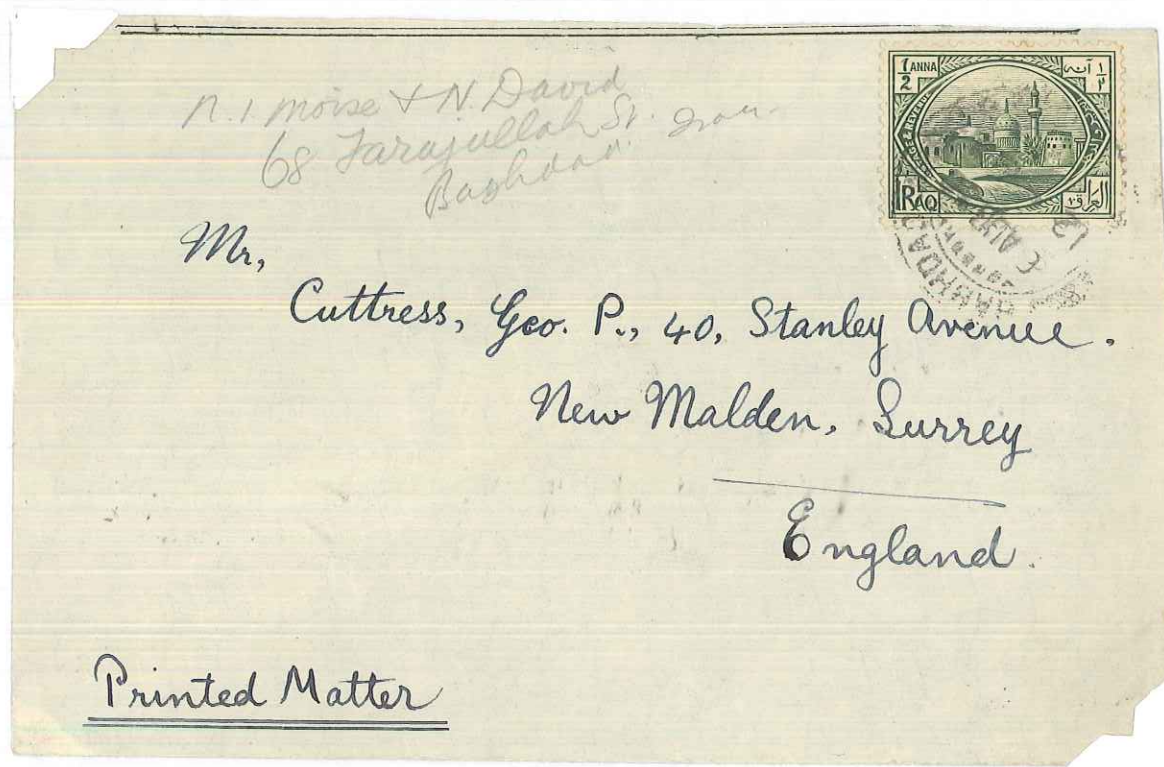 N. I. Moise & N. David
68 Farajullah St.
Baghdad.
1/2 ANNA
١/٢ آنه
POSTAGE & REVENUE
IRAQ
العراق
BAGHDAD
Mr,
Cuttress, Geo. P., 40, Stanley Avenue.
New Malden, Surrey
England.
Printed Matter